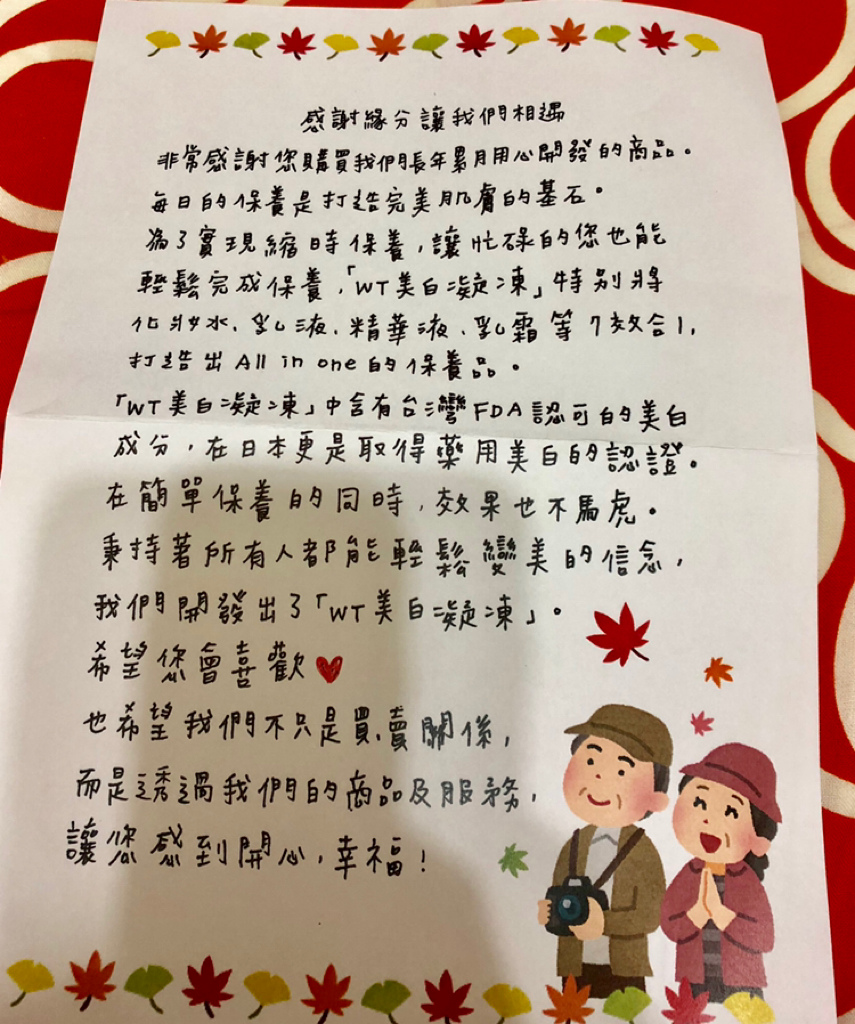 感謝緣分讓我們相遇
非常感謝您購買我們長年累月用心開發的商品。
每日的保養是打造完美肌膚的基石。
為了實現縮時保養,讓忙碌的您也能
輕鬆完成保養,「WT美白凝凍」特別將
化妝水、乳液、精華液、乳霜等7效合1,
打造出All in one的保養品。
「WT美白凝凍」中含有台灣FDA認可的美白
成分,在日本更是取得藥用美白的認證。
在簡單保養的同時,效果也不馬虎。
秉持著所有人都能輕鬆變美的信念,
我們開發出了「WT美白凝凍」。
希望您會喜歡♥
也希望我們不只是買賣關係,
而是透過我們的商品及服務,
讓您感到開心,幸福!